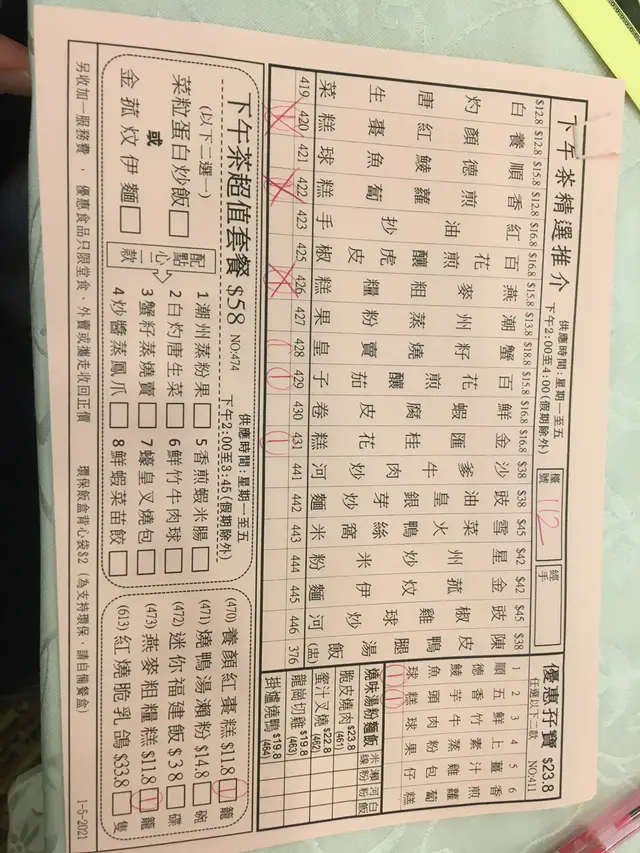 下午茶精選推介
供應時間:星期一至五
下午2:00至4:00(假期除外)
檯號 112
經手
$12.8 白灼唐生菜 419
$12.8 養顏紅棗糕 420
$15.8 順德鯪魚球 421
$12.8 香煎蘿蔔糕 422
$16.8 紅油抄手 423
$16.8 百花煎釀虎皮椒 425
$15.8 燕麥粗糧糕 426
$13.8 潮州蒸粉果 427
$18.8 蟹籽燒賣皇 428
$15.8 百花煎釀茄子 429
$16.8 鮮蝦腐皮卷 430
$16.8 金匯桂花糕 431
$38 沙爹牛肉炒河 441
$38 豉油皇銀芽炒麵 442
$45 雪菜火鴨絲窩米 443
$42 星州炒米粉 444
$42 金菰炆伊麵 445
$45 豉椒雞球炒河 446
$38 陳皮鴨腿湯飯(盅) 376
優惠孖寶 $23.8
任選以下二款 NO:411
1 順德鯪魚球
2 五香芋頭糕
3 鮮竹牛肉球
4 上素蒸粉果
6 香煎蘿蔔糕
燒味湯粉麵飯 米線 瀨粉 河粉 白飯
脆皮燒肉 $23.8 (461)
蜜汁叉燒 $22.8 (462)
龍崗切雞 $19.8 (463)
掛爐燒鴨 $19.8 (464)
下午茶超值套餐 $58 NO:474
供應時間:星期一至五
下午2:00至3:45(假期除外)
(以下二選一)
菜粒蛋白炒飯
或
金菰炆伊麵
配點心二款
1 潮州蒸粉果 5 香煎蝦米腸
2 白灼唐生菜 6 鮮竹牛肉球
3 蟹籽蒸燒賣 7 蠔皇叉燒包
4 炒醬蒸鳳爪 8 鮮蝦菜苗餃
(470) 養顏紅棗糕 $11.8 籠
(471) 燒鴨湯瀨粉 $14.8 碗
(472) 迷你福建飯 $38 碟
(473) 燕麥粗糧糕 $11.8 籠
(613) 紅燒脆乳鴿 $33.8 隻
另收加一服務費,優惠食品只限堂食、外賣或攜走收回正價 環保飯盒背心袋$2 (為支持環保,請自備餐盒) 1-5-2021